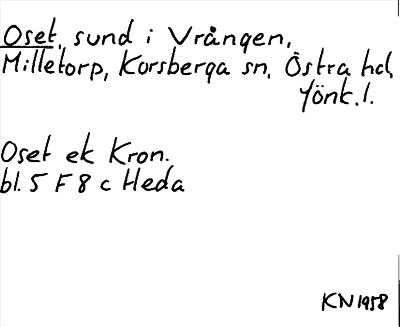 Oset, sund i Vrången,
Milletorp, Korsberga sn, Östra hd,
Jönk. l.
Oset ek Kron.
bl. 5 F 8 c Heda
KN 1958